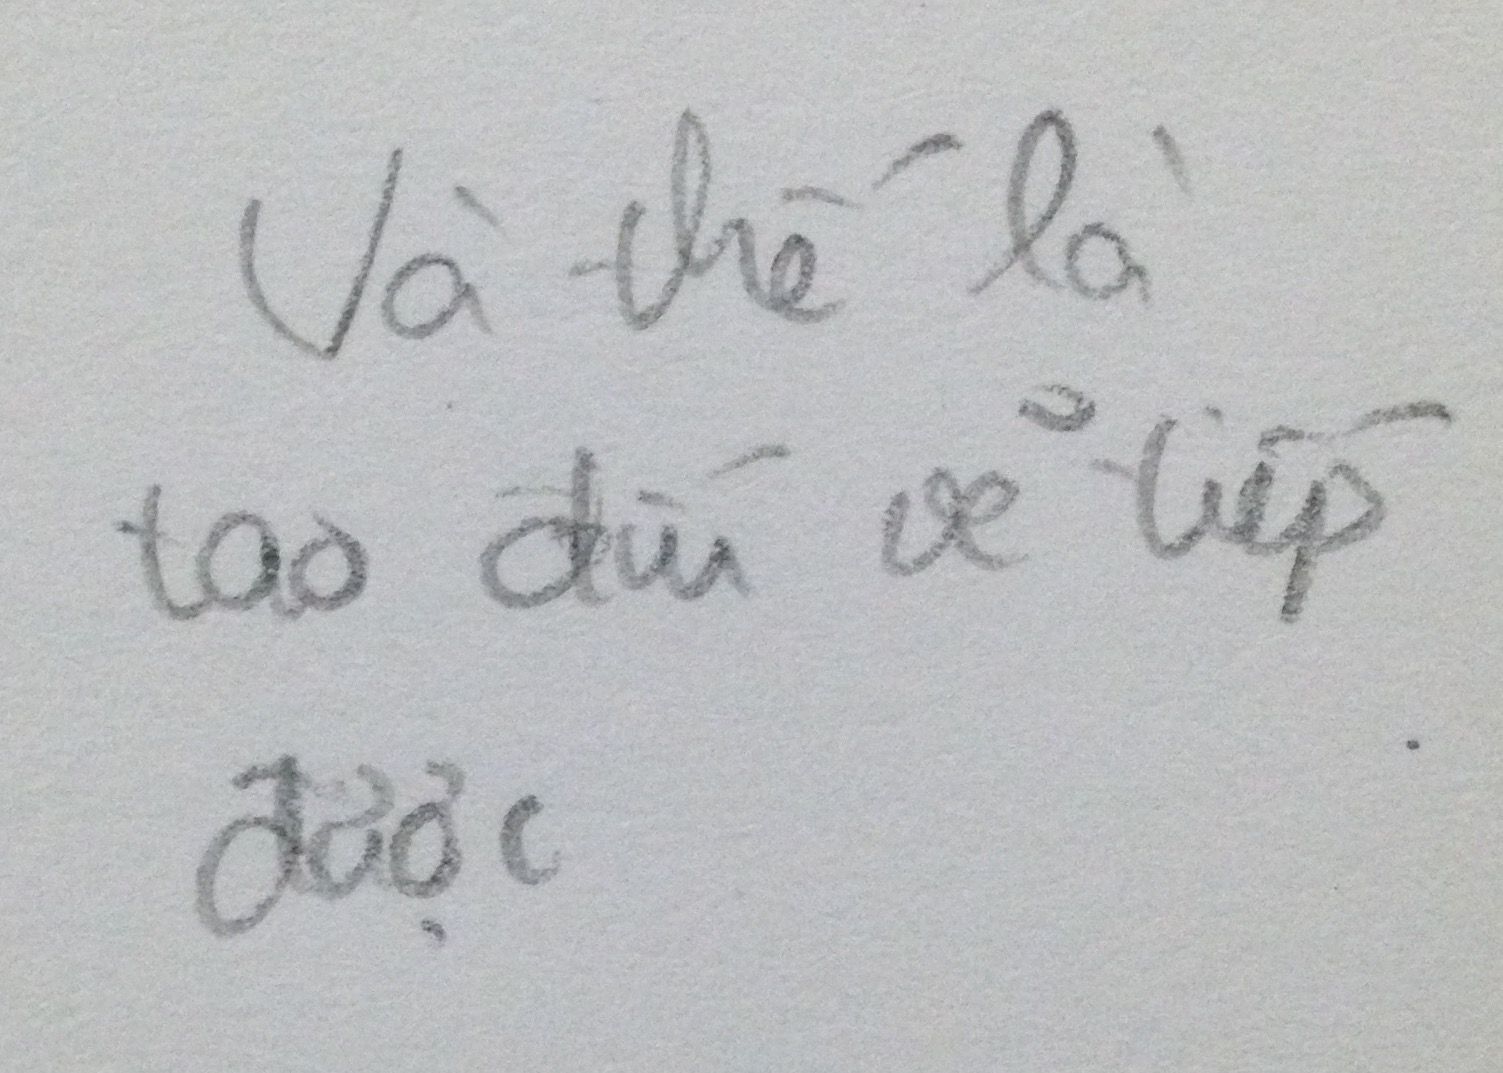 Và thế là
tao đếú vẽ tiếp
được